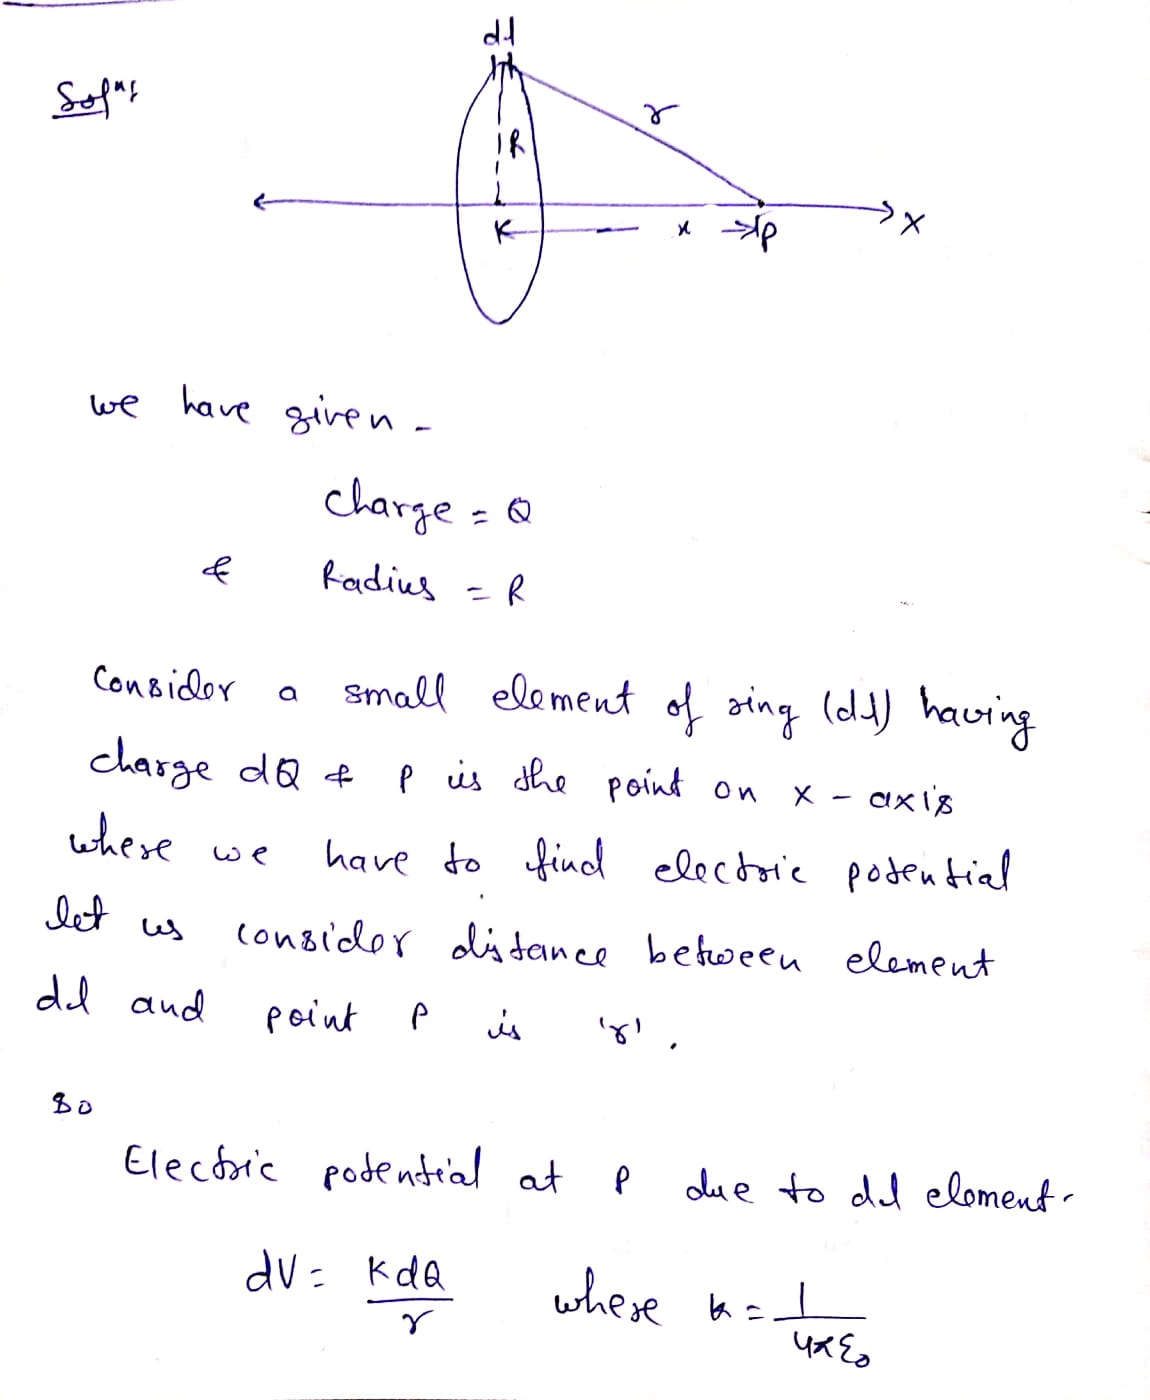 dl
Solⁿ:
r
R
x P
X
we have given -
charge = Q
& Radius = R
Consider a small element of ring (dl) having
charge dQ & P is the point on x - axis
where we have to find electric potential
let us consider distance between element
dl and point P is 'r'.
so
Electric potential at P due to dl element.
dV = KdQ/r where k = 1/4πε₀